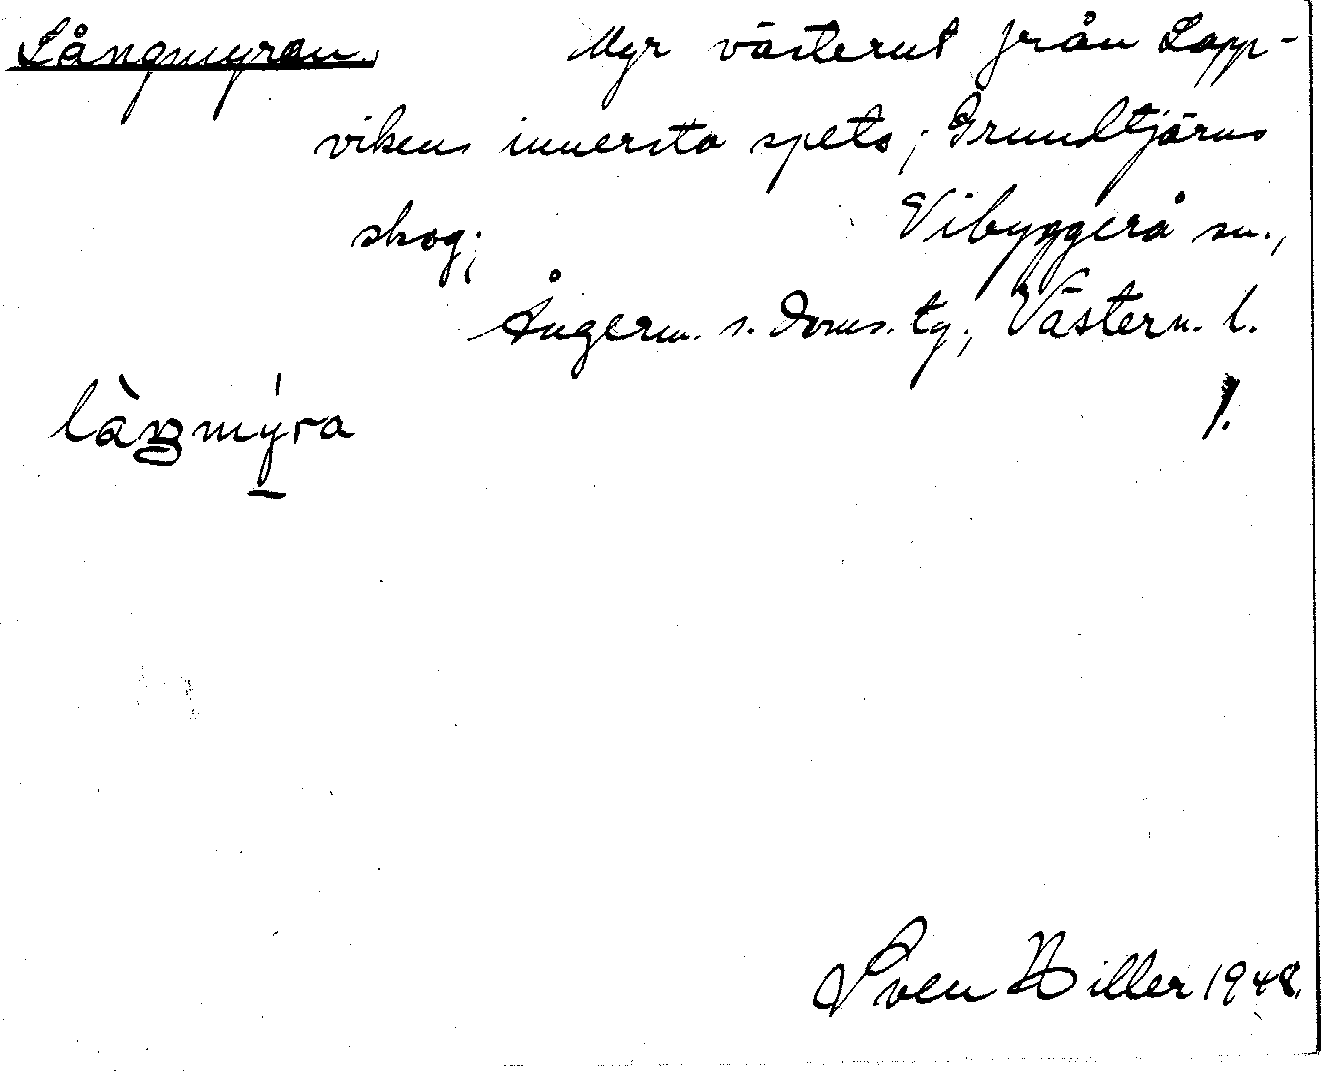 Långmyran. Myr västerut från Lapp-
vikens innersta spets; Grundtjärns
skog; Vibyggerå sn.,
Ångerm. s. doms. tg., Västern. l.
1.
Sven Hiller 1948.